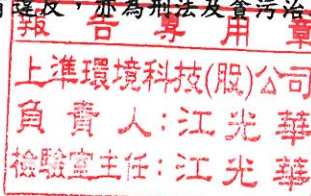 違反，亦為刑法及貪污治
報告專用章
上準環境科技(股)公司
負責人:江光華
檢驗室主任:江光華